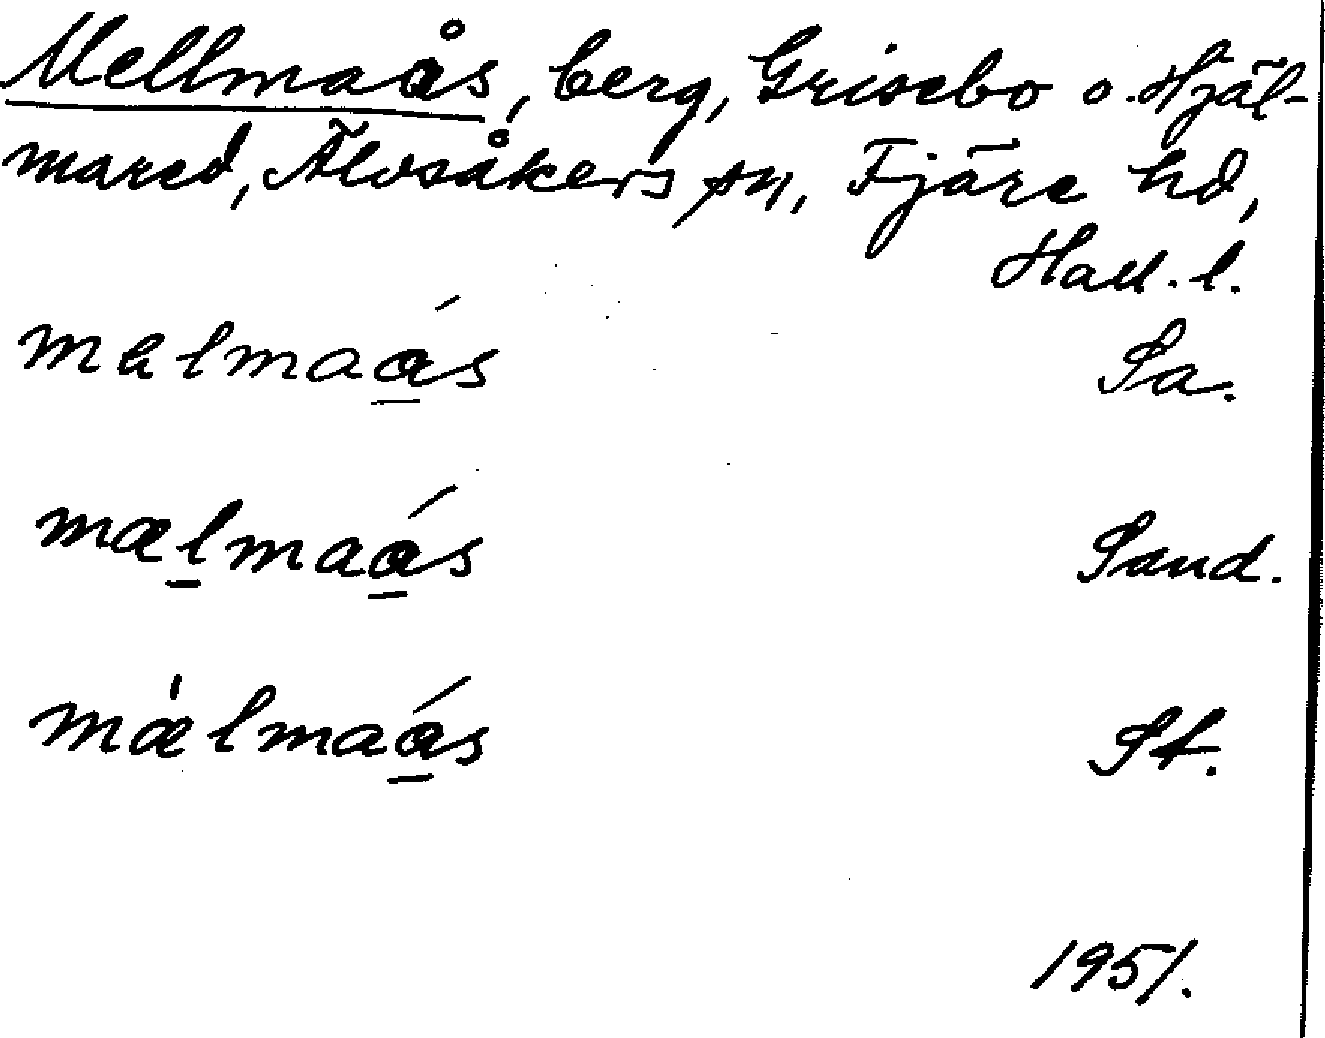 Mellmaås, berg, Grisebo o. Hjäl-
mared, Älvsåkers sn, Fjäre hd,
Hall. l.
mælmaás Sa.
mælmaás Sand.
mælmaás St.
1951.